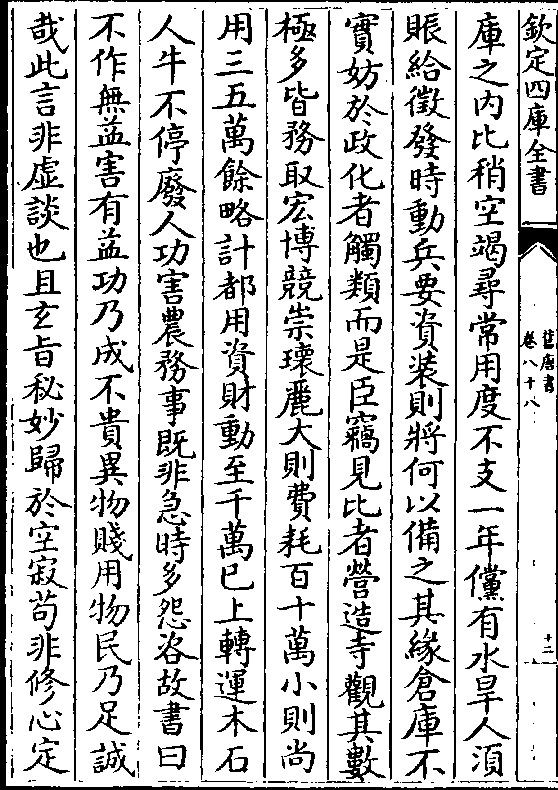 欽定四庫全書
舊唐書
卷八十八
十二
庫之內比稍空竭尋常用度不支一年儻有水旱人須
賑給徵發時動兵要資装則將何以備之其緣倉庫不
實妨於政化者觸類而是臣竊見比者營造寺觀其數
極多皆務取宏博競崇瓌麗大則費耗百十萬小則尚
用三五萬餘略計都用資財動至千萬已上轉運木石
人牛不停廢人功害農務事既非急時多怨咨故書曰
不作無益害有益功乃成不貴異物賤用物民乃足誠
哉此言非虛談也且玄旨秘妙歸於空寂苟非修心定